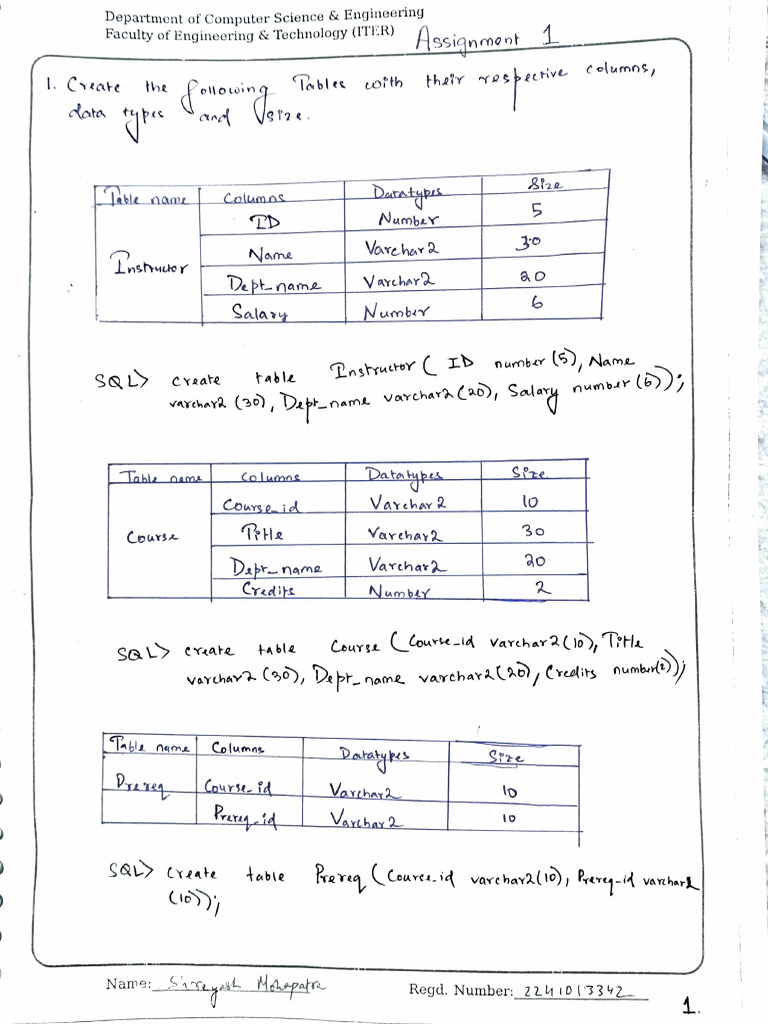 Department of Computer Science & Engineering
Faculty of Engineering & Technology (ITER)
Assignment 1
1. Create the following Tables with their respective columns,
data types and size.
Table name Columns Datatypes Size
Instructor
ID Number 5
Name Varchar2 30
Dept_name Varchar2 20
Salary Number 6
SQL> create table Instructor ( ID number (5), Name
varchar2 (30), Dept_name varchar2 (20), Salary number (6));
Table name Columns Datatypes Size
Course
Course_id Varchar2 10
Title Varchar2 30
Dept_name Varchar2 20
Credits Number 2
SQL> create table Course (Course_id varchar2(10), Title
varchar2 (30), Dept_name varchar2(20), Credits number(2));
Table name Columns Datatypes Size
Prereq Course_id Varchar2 10
Prereq_id Varchar2 10
SQL> Create table Prereq (Course_id varchar2(10), Prereq_id varchar2
(10));
Name: Mohapatra
Regd. Number: 2241013342
1.